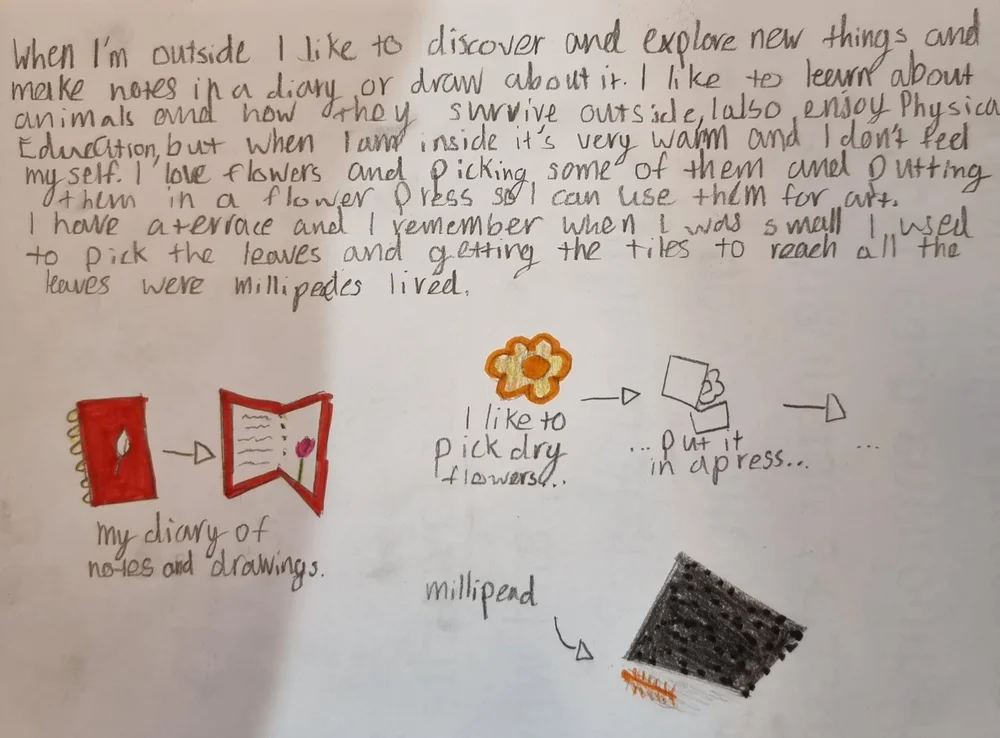 When I'm outside I like to discover and explore new things and
make notes in a diary or draw about it. I like to learn about
animals and how they survive outside, I also enjoy Physica
Education, but when I am inside it's very warm and I don't feel
my self. I love flowers and picking some of them and putting
them in a flower press so I can use them for art.
I have a terrace and I remember when I was small I used
to pick the leaves and getting the tiles to reach all the
leaves were millipedes lived.
I like to
pick dry
flowers...
... put it
in a press...
...
my diary of
notes and drawings.
millipead